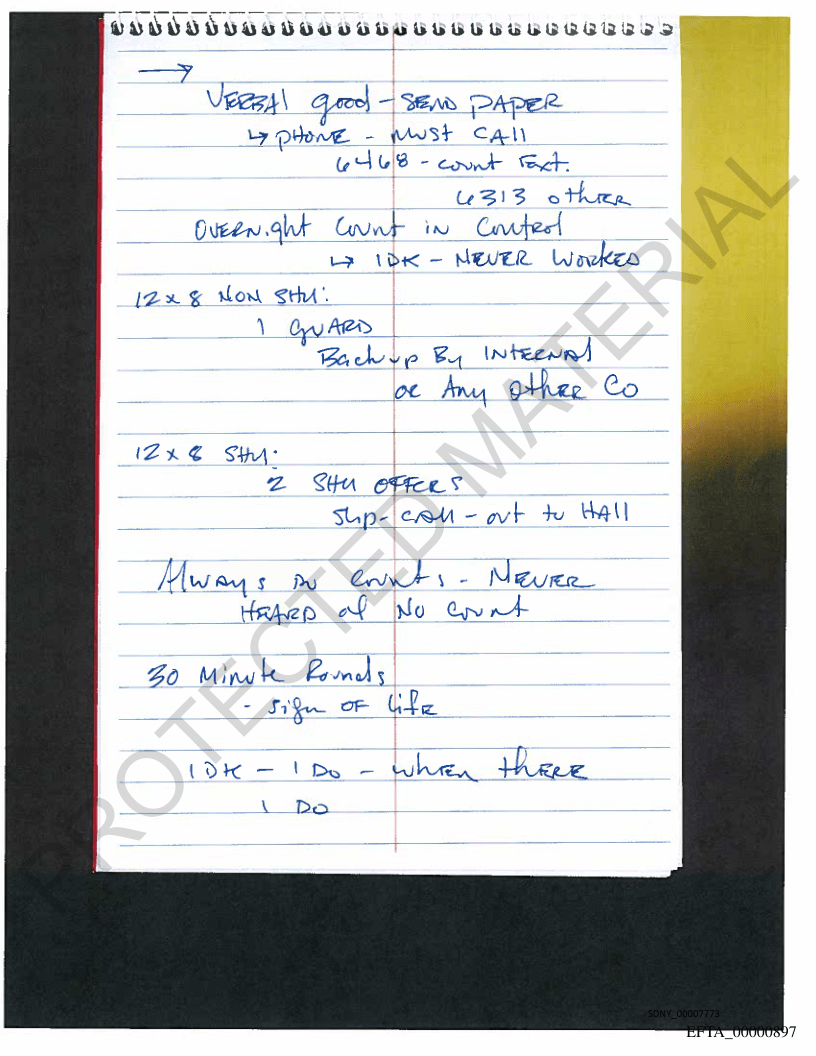 →
VERBAl good - SEND PAPER
↳ PHONE - MUST CAll
6468 - count Ext.
6313 other
OVERNight Count in Control
↳ IDK - NEVER WORKED
12 x 8 NON SHU:
1 GUARD
Backup By INTERNAl
or Any other Co
12 x 8 SHU:
2 SHU OFFCRS
Slip - CAll - out to HAll
Always Do Counts - NEVER
HEARD of No Count
30 Minute Rounds
- Sign OF LifE
IDK - I Do - when thERE
I DO
PROTECTED MATERIAL
SDNY_00007773
EFTA_00000897